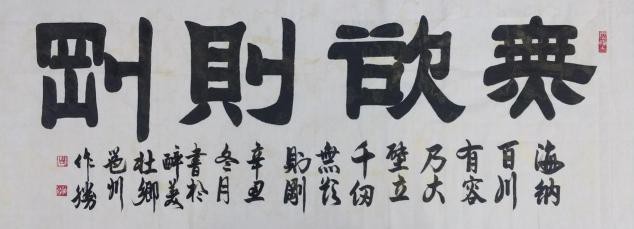 無欲則剛
海納
百川
有容
乃大
壁立
千仞
無欲
則剛
辛丑
冬月
書於
醉美
壯鄉
邕州
作勝